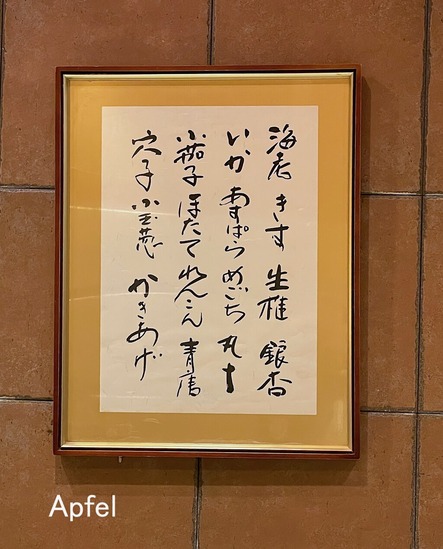 海老 きす 生椎 銀杏
いか あすぱら めごち 丸十
小茄子 ほたて れんこん 青唐
穴子 小玉葱 かきあげ
Apfel